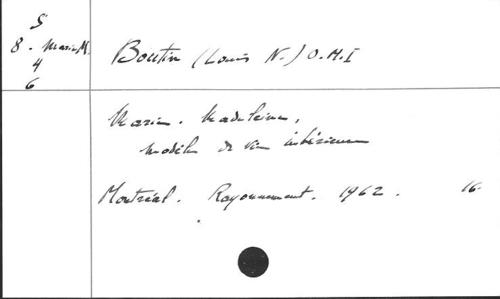 S
8 - Marie M.
4
6
Boutin (Louis N.) O.M.I
Marie - Madeleine,
modèle de vie intérieure
Montréal. Rayonnement. 1962. 16.